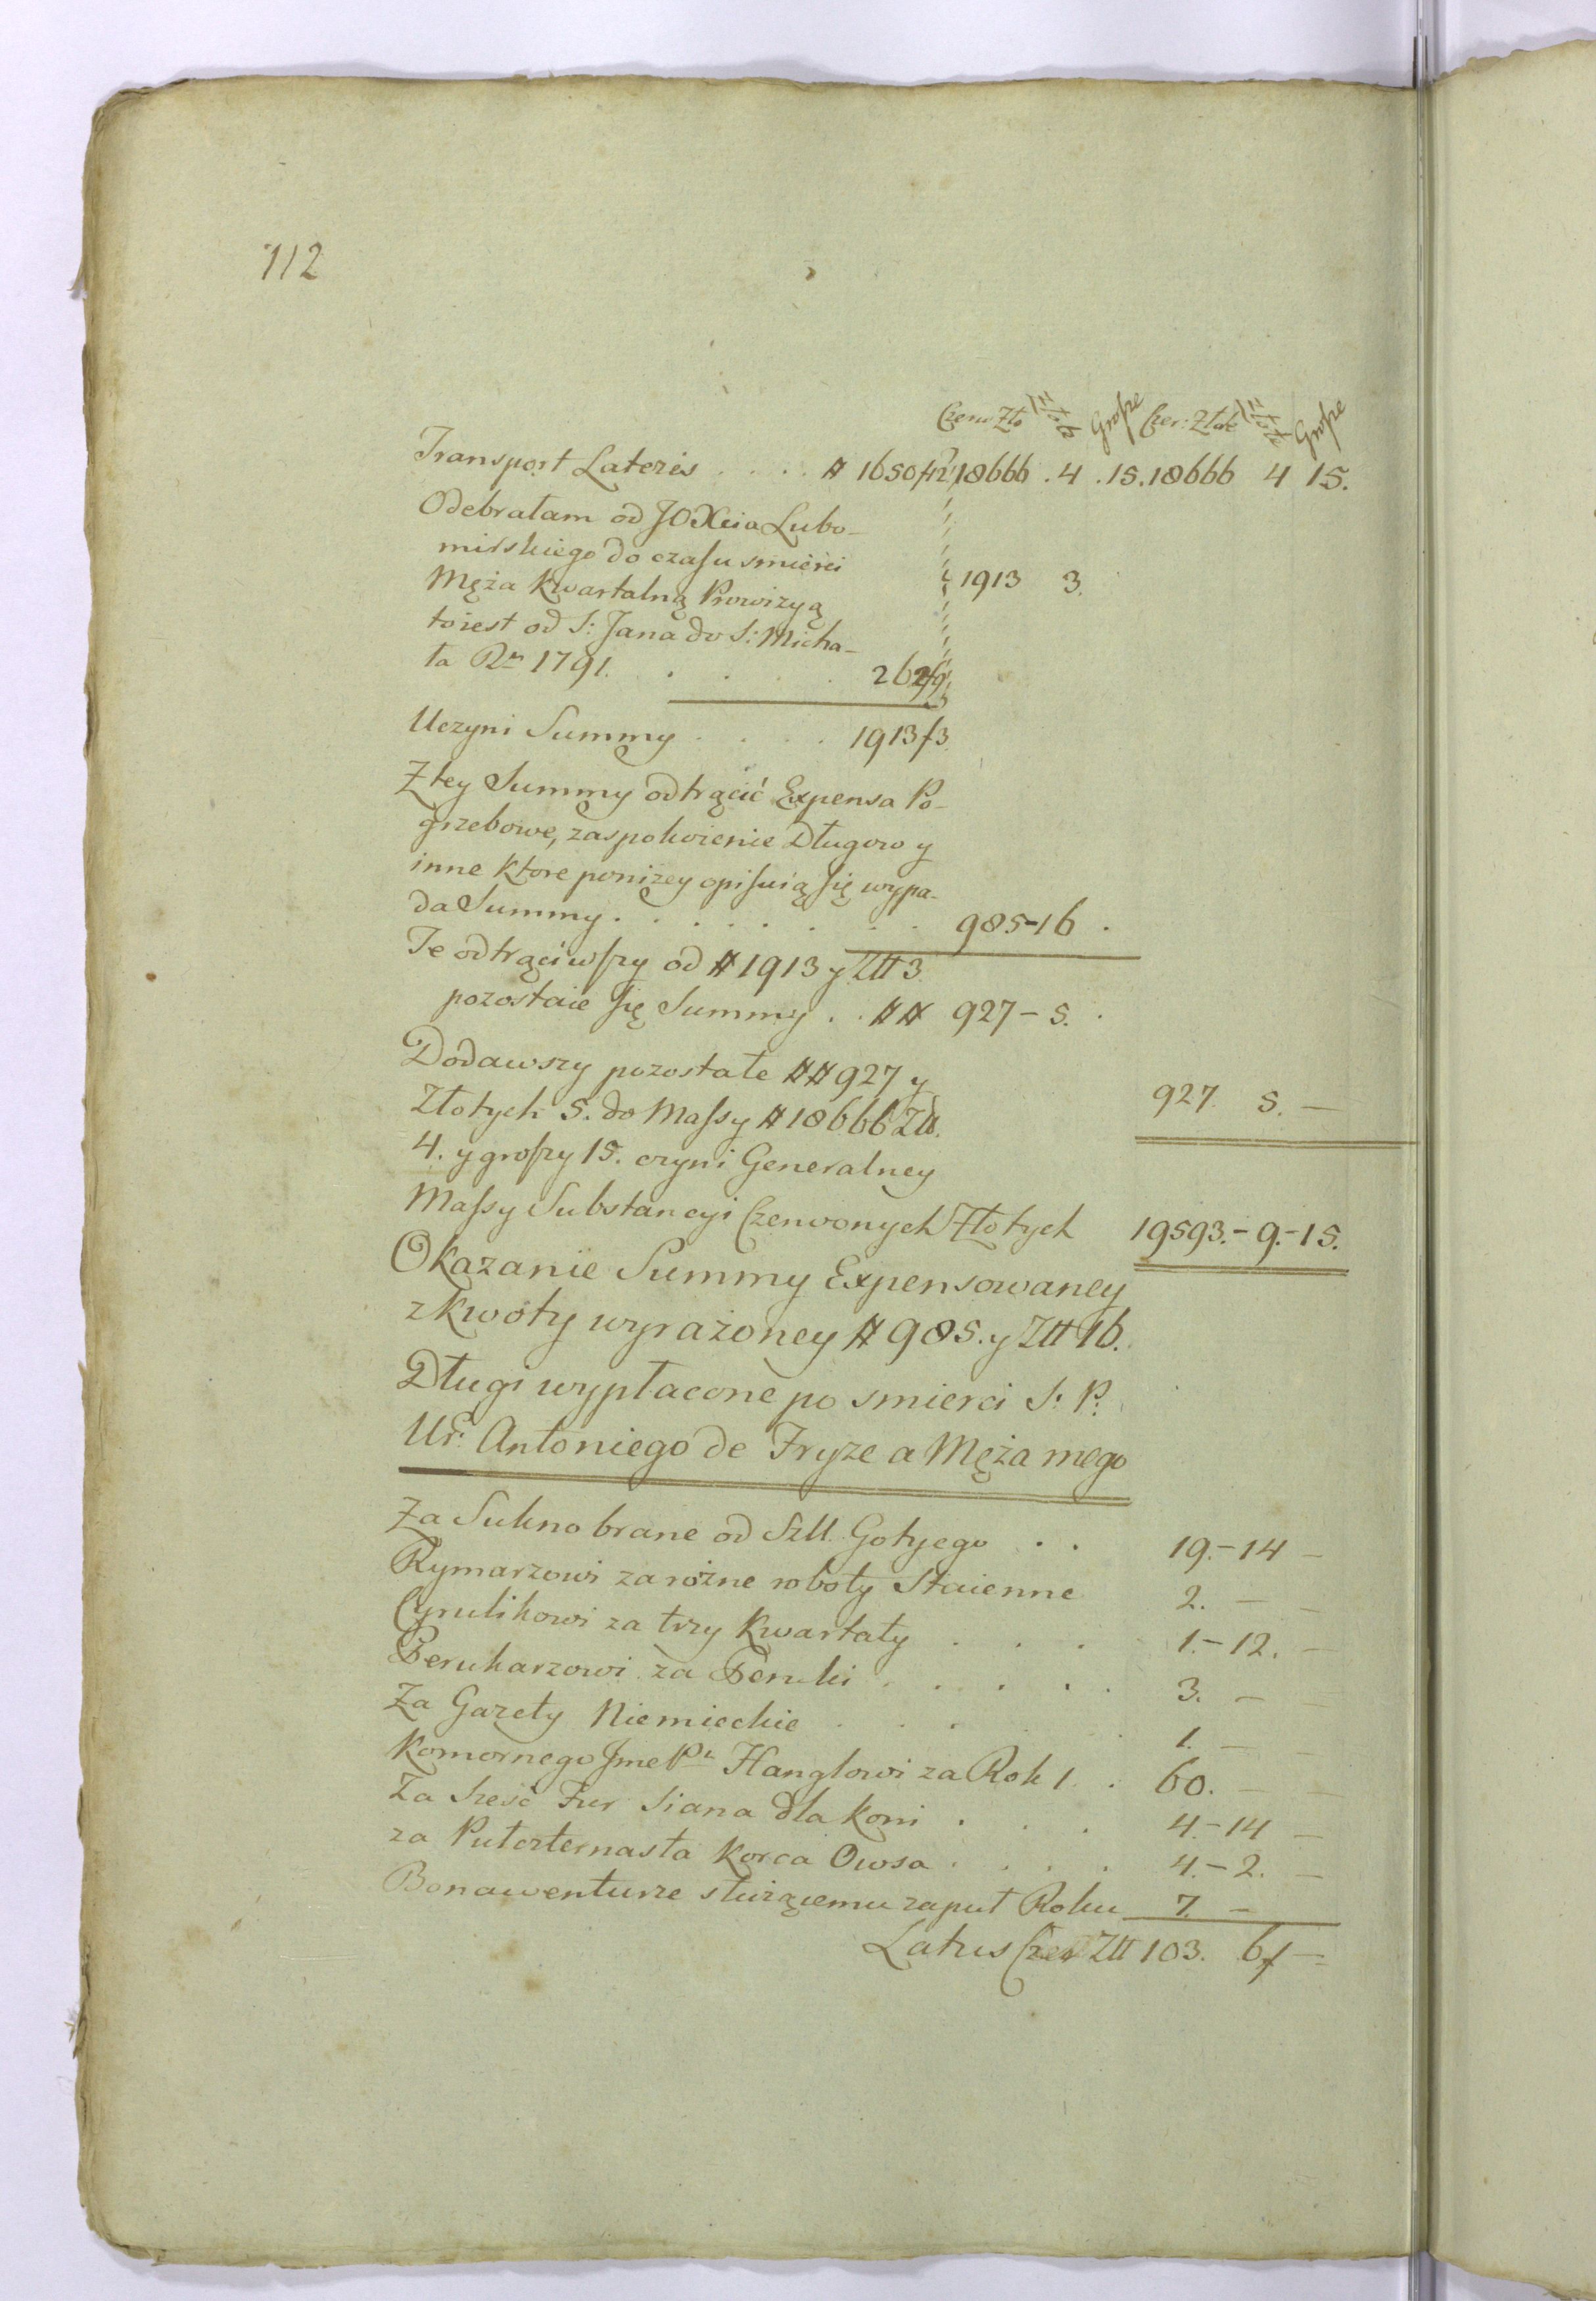 112
Czerw Zło Złote Grosze Czer: Złote Złote Grosze
Transport Lateris . . . . # 1650/12 18666 . 4 . 15. 18666 4 15.
Odebrałam od JOXcia Lubo-
mirskiego do czasu smierci
Męża Kwartalną Prowizyą 1913 3.
toiest od S: Jana do S: Micha-
ła Ru 1791. . . . . 262/9
Uczyni Summy . . . . 1913/3
Z tey Summy odtrącić Expensa Po-
grzebowe, zaspokoienie Długow y
inne Ktore ponizey opisuią się wypa-
da Summy . . . . . . . 985-16 .
Te odtrąciwszy od # 1913 y Ztt 3
pozostaie się Summy . . ## 927 - 5. .
Dodawszy pozostałe ## 927 y
Złotych 5. do Massy # 18666 Ztt. 927. 5. —
4. y groszy 15. czyni Generalney
Massy Substancyi Czerwonych Złotych 19593.- 9.- 15.
Okazanie Summy Expensowaney
z kwoty wyrażoney # 985. y Ztt 16.
Długi wypłacone po smierci S: P:
Ur: Antoniego de Fryze a Męża mego
Za Sukno brane od Szll. Gotyego . . 19.- 14 —
Rymarzowi za rożne roboty Staienne 2. — —
Cyrulikowi za trzy Kwartały . . . 1.- 12. —
Perukarzowi za Peruki . . . . . 3. — —
Za Gazety Niemieckie . . . . 1. — —
Komornego Jme Pu Hanglowi za Rok 1 . 60. — —
Za Sześć Fur Siana dla Koni . . . 4.- 14 —
za Pułczternasta Korca Owsa . . . . 4.- 2. —
Bonawenturze służącemu za puł Roku 7. —
Latus Czer Ztt 103. 6 f —